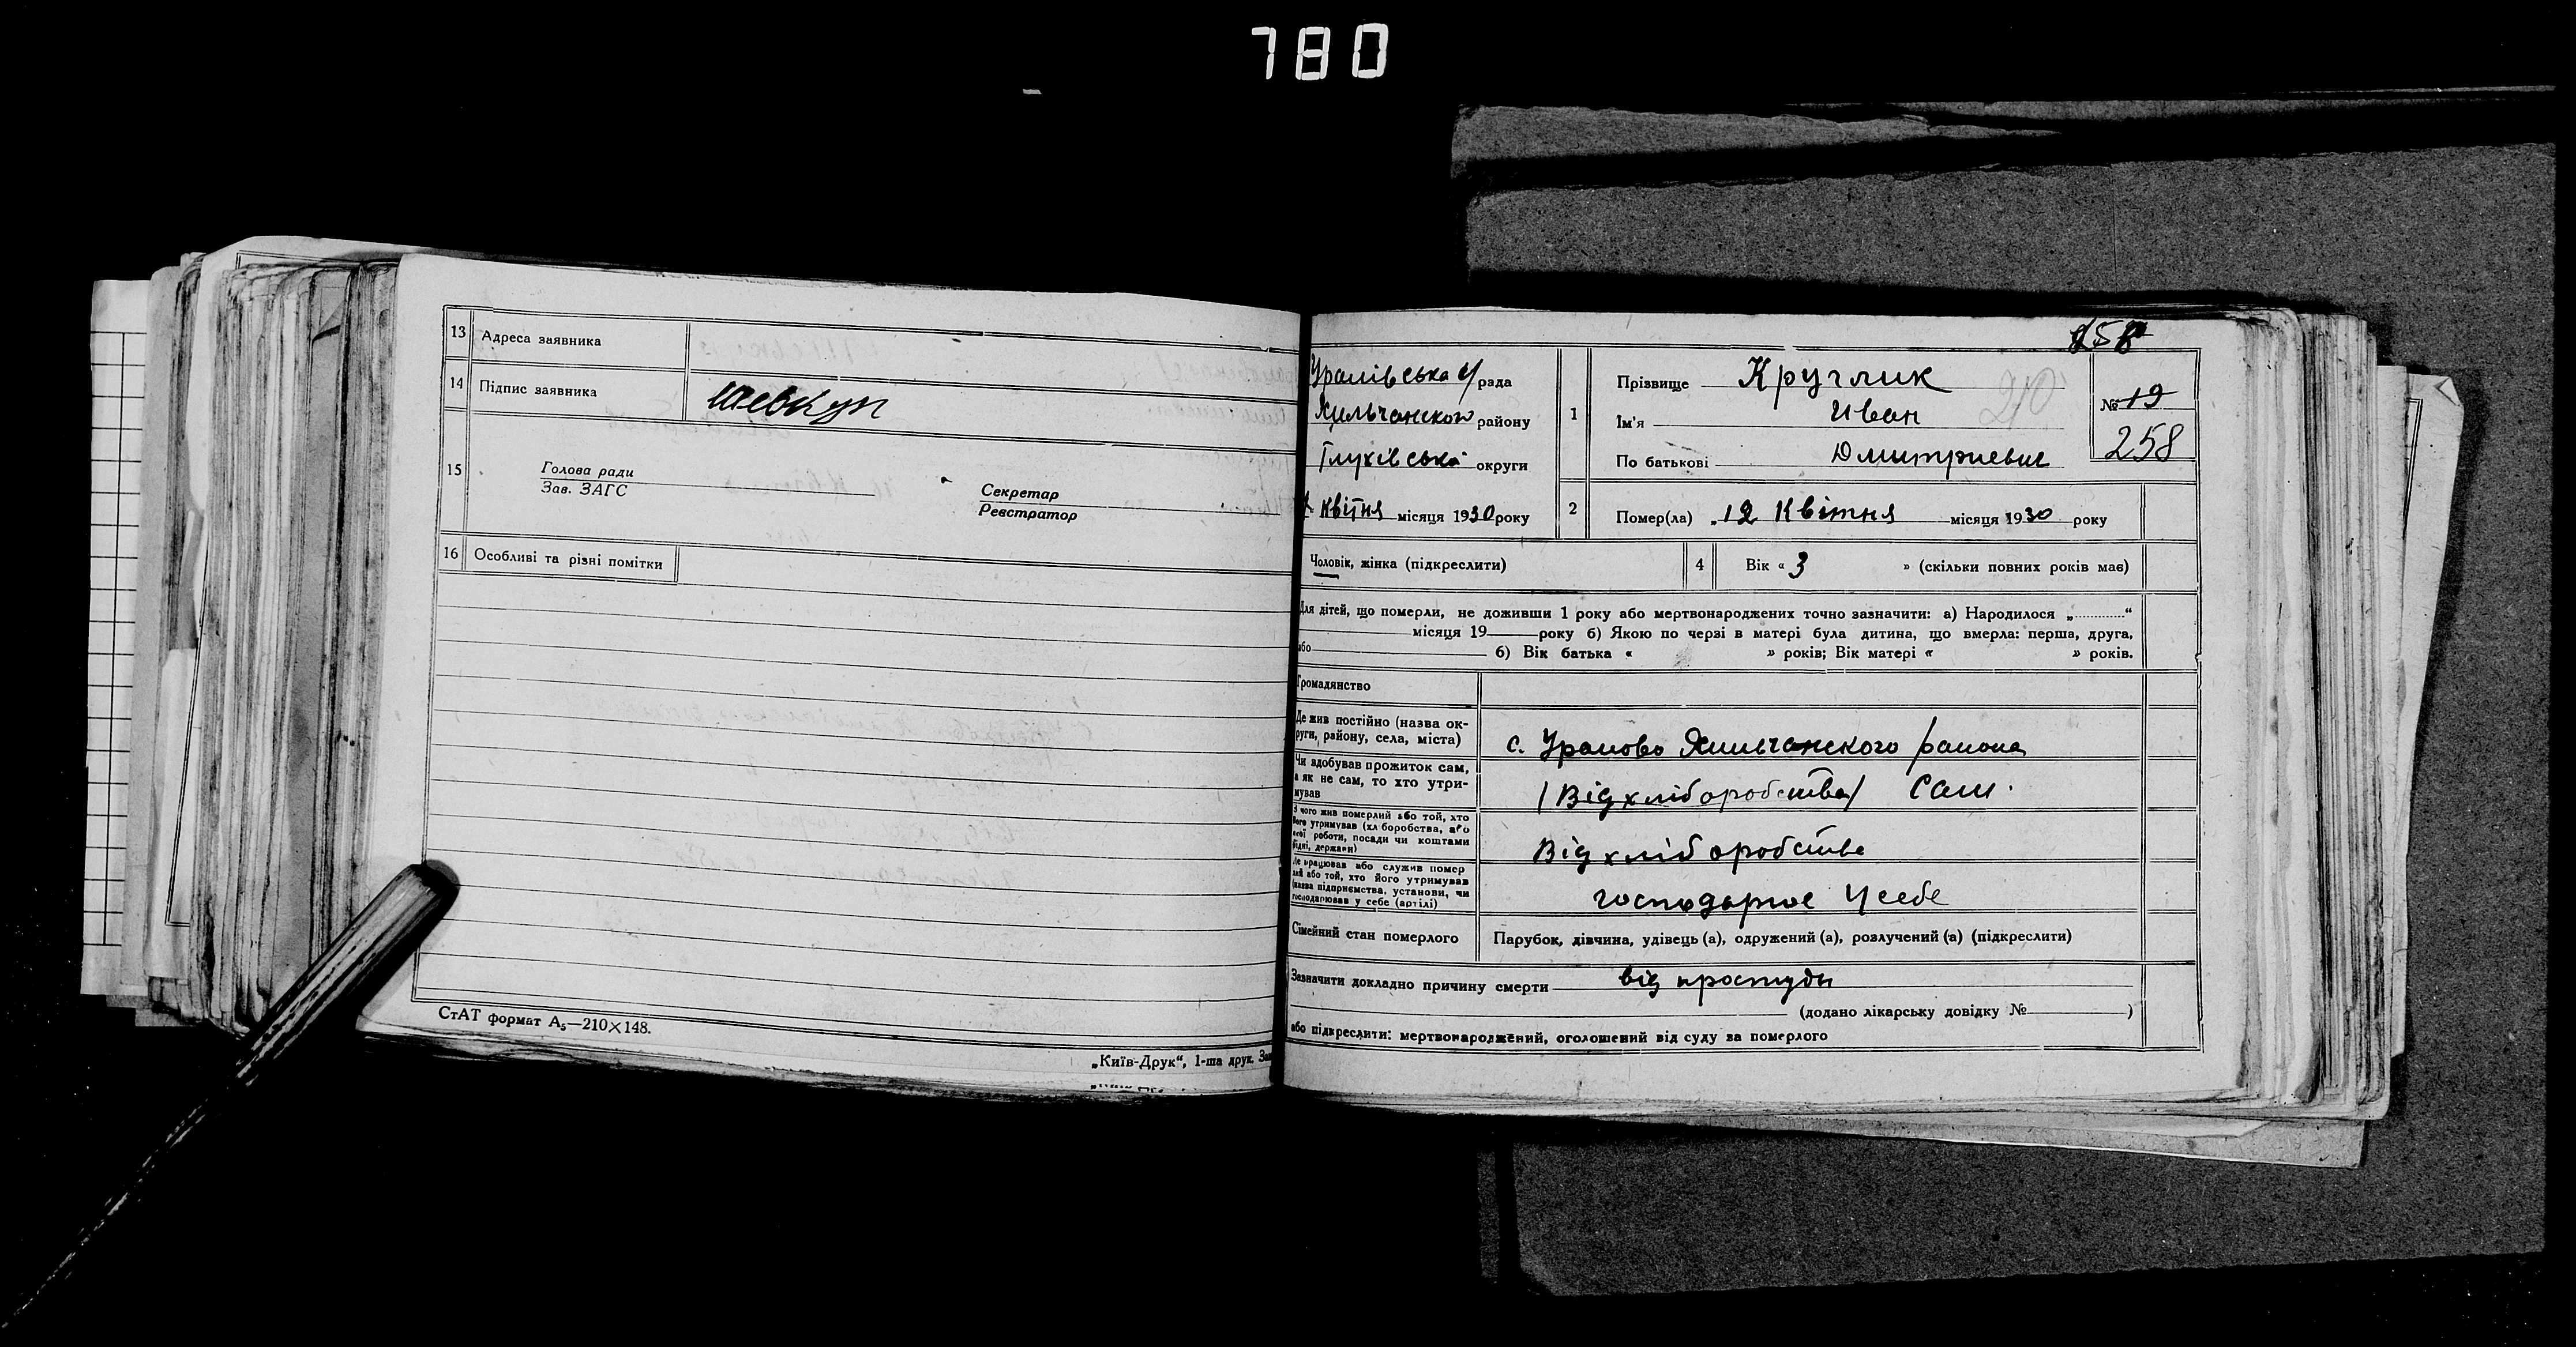 780
13 Адреса заявника
14 Підпис заявника Шевкун
15 Голова ради
Зав. ЗАГС
Секретар
Реєстратор
16 Особливі та різні помітки
СтАТ формат А₅—210×148.
„Київ-Друк“, 1-ша друк. Зам
Уралівська с/рада
Хильчанског району
Глухівська округи
Квітня місяця 1930 року
1 Прізвище Круглик
Ім'я Иван
По батькові Дмитриевич
210
№ 19
258
2 Помер(ла) „12 Квітня місяця 1930 року
Чоловік, жінка (підкреслити)
4 Вік « 3 » (скільки повних років має)
Для дітей, що померли, не доживши 1 року або мертвонароджених точно зазначити: а) Народилося „............“
місяця 19 року б) Якою по черзі в матері була дитина, що вмерла: перша, друга,
або б) Вік батька « » років; Вік матері « » років.
Громадянство
Де жив постійно (назва ок-
руги, району, села, міста) с. Уралово Хильчанского района
Чи здобував прожиток сам,
а як не сам, то хто утри-
мував /Від хліборобства/ Сам.
З чого жив померлий або той, хто
його утримував (хліборобства, або
своєї роботи, посади чи коштами
рідні, держави) Від хліборобства
Де працював або служив помер
лий або той, хто його утримував
(назва підприємства, установи, чи
господарював у себе (артілі) господарює у себе
Сімейний стан померлого Парубок, дівчина, удівець (а), одружений (а), розлучений (а) (підкреслити)
Зазначити докладно причину смерти від простуди
(додано лікарську довідку № )
або підкреслити: мертвонароджений, оголошений від суду за померлого